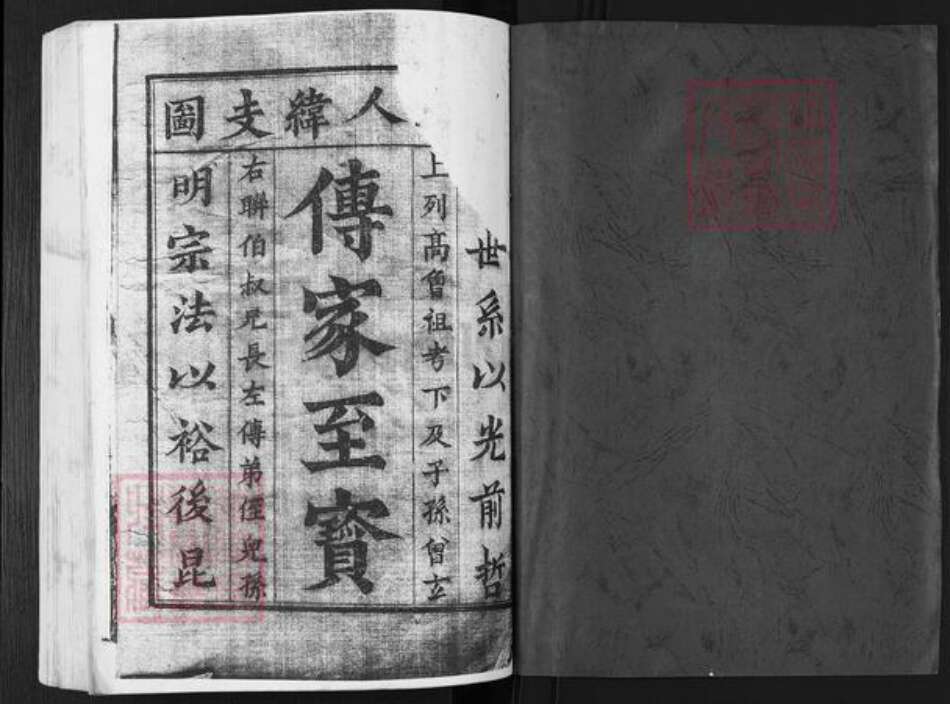 人緯支圖
世系以光前哲
上列高曾祖考下及子孫曾玄
傳家至寶
右聯伯叔兄長左傳弟侄兒孫
明宗法以裕後昆